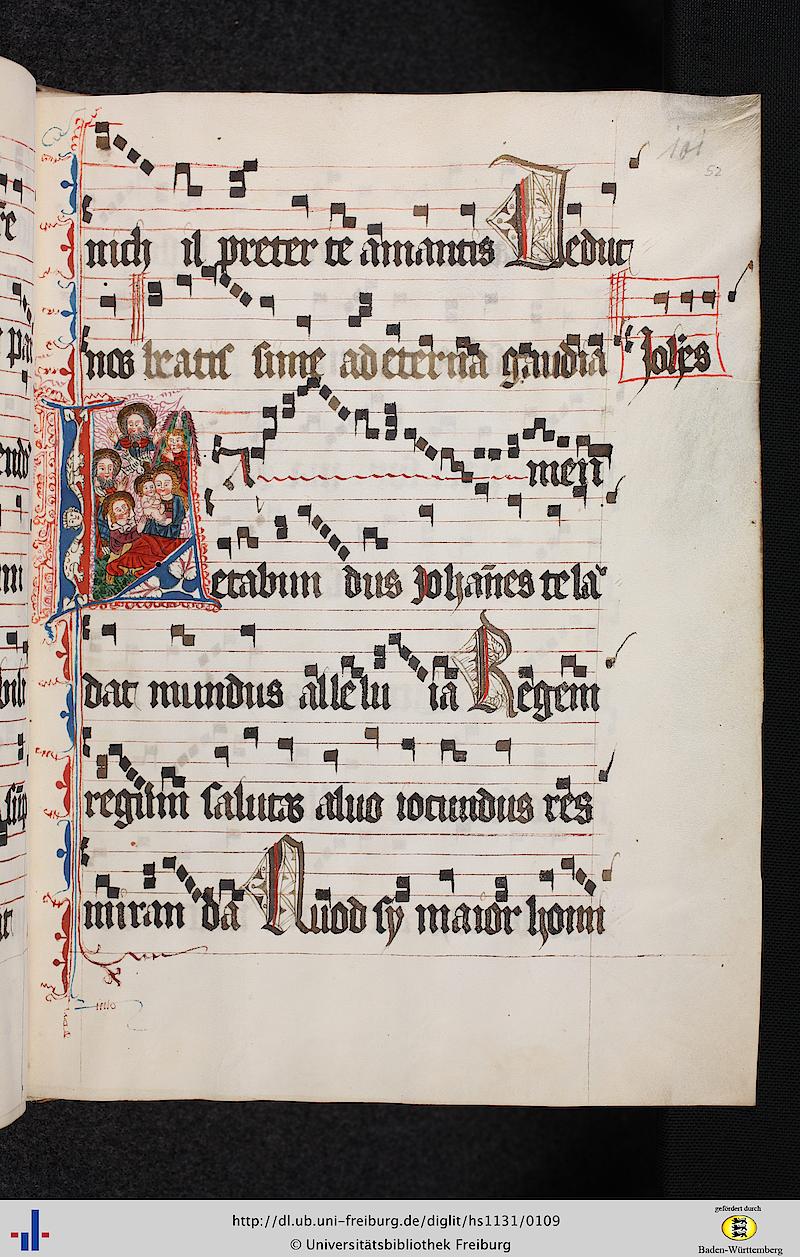 101
52
nich il preter te amantis Deduc
nos beatis sime ad eterna gaudia
Joh̄es
A men
Letabun dus Joħanēs te la
dat mundus allelu ia Regem
regūm salutat aluo iocundus rēs
miran da Quod sy maior homi
http://dl.ub.uni-freiburg.de/diglit/hs1131/0109
© Universitätsbibliothek Freiburg
gefördert durch
Baden-Württemberg